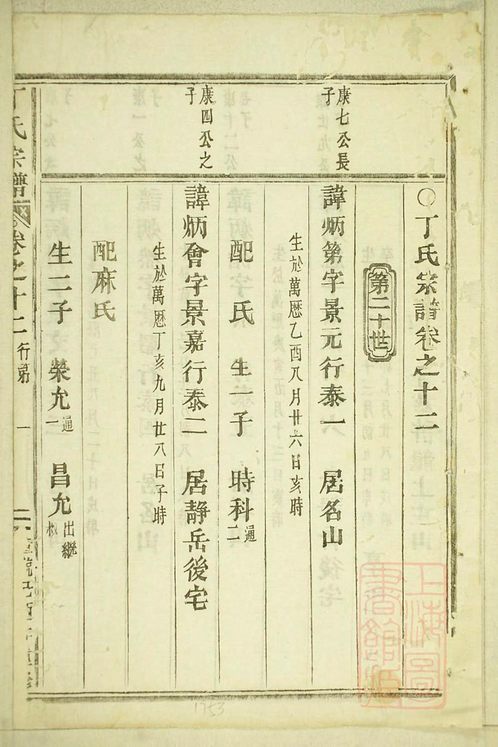 ○丁氏宗譜卷之十二
第二十世
康七公長子
諱炳第字景元行泰一 居名山
生於萬曆乙酉八月廿六日亥時
配 氏 生一子 時科通二
康四公之子
諱炳會字景嘉行泰二 居靜岳後宅
生於萬曆丁亥九月廿八日子時
配麻氏
生二子 榮允通一 昌允出繼
丁氏宗譜 卷之十二 行第 一
上海圖書館藏
1753